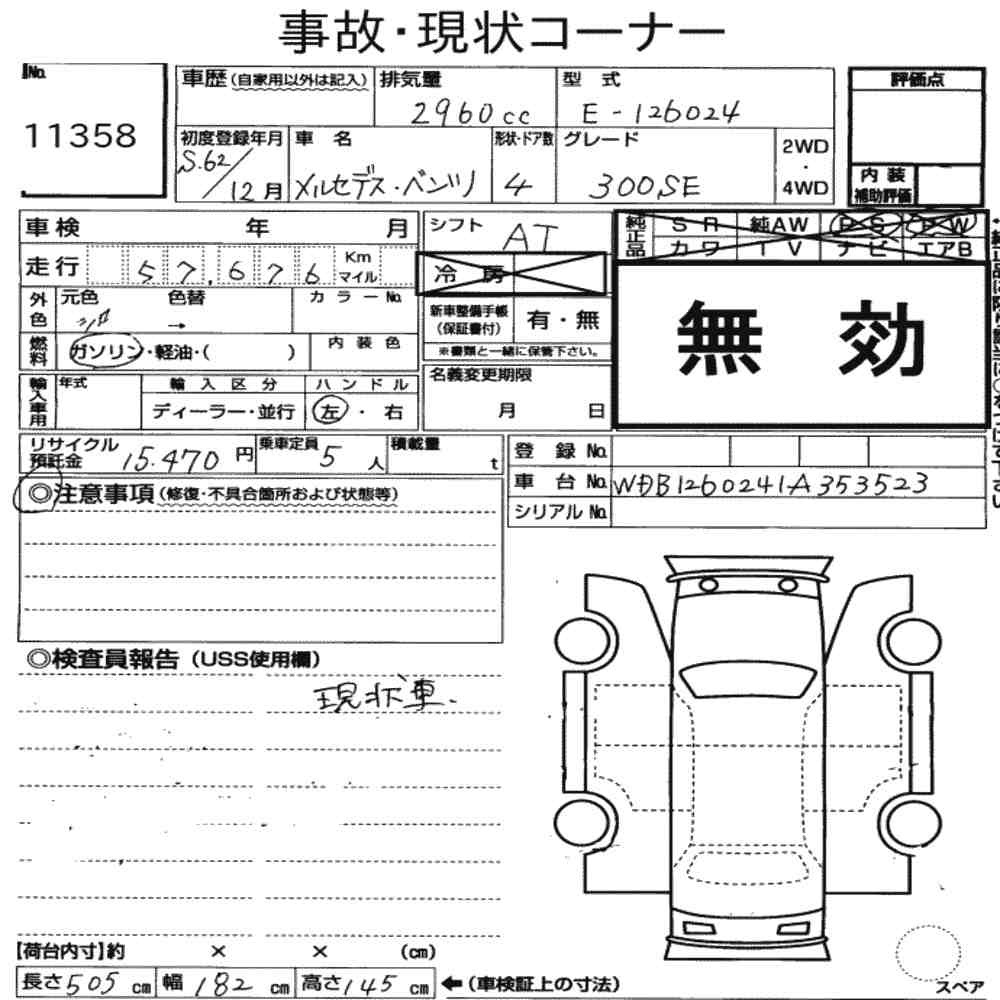 事故・現状コーナー
No.
11358
車歴(自家用以外は記入)
排気量
2960cc
型式
E-126024
評価点
内装
補助評価
初度登録年月
S.62/12月
車名
メルセデス・ベンツ
形状・ドア数
4
グレード
300SE
2WD
・
4WD
車検 年 月
走行 57,676 Km マイル
シフト
AT
冷房
純正品
SR 純AW PS PW
カワ TV ナビ エアB
無効
外色
元色
色替
カラーNo.
→
燃料
ガソリン・軽油・( )
内装色
新車整備手帳
(保証書付)
有・無
※書類と一緒に保管下さい。
輸入車用
年式
輸入区分
ディーラー・並行
ハンドル
左・右
名義変更期限
月 日
リサイクル
預託金 15.470 円
乗車定員 5 人
積載量 t
登録No.
車台No. WDB1260241A353523
シリアルNo.
◎注意事項(修復・不具合箇所および状態等)
◎検査員報告(USS使用欄)
現状車.
【荷台内寸】約 × × (cm)
長さ505cm 幅182cm 高さ145cm ←(車検証上の寸法)
スペア